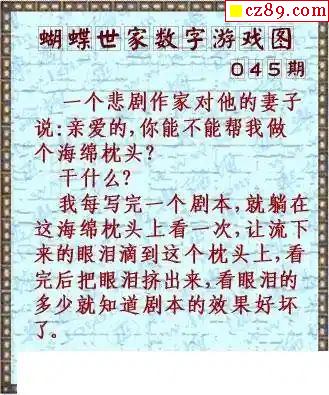 cz89.com
蝴蝶世家数字游戏图
045期
一个悲剧作家对他的妻子
说:亲爱的,你能不能帮我做
个海绵枕头?
干什么?
我每写完一个剧本,就躺在
这海绵枕头上看一次,让流下
来的眼泪滴到这个枕头上,看
完后把眼泪挤出来,看眼泪的
多少就知道剧本的效果好坏
了。